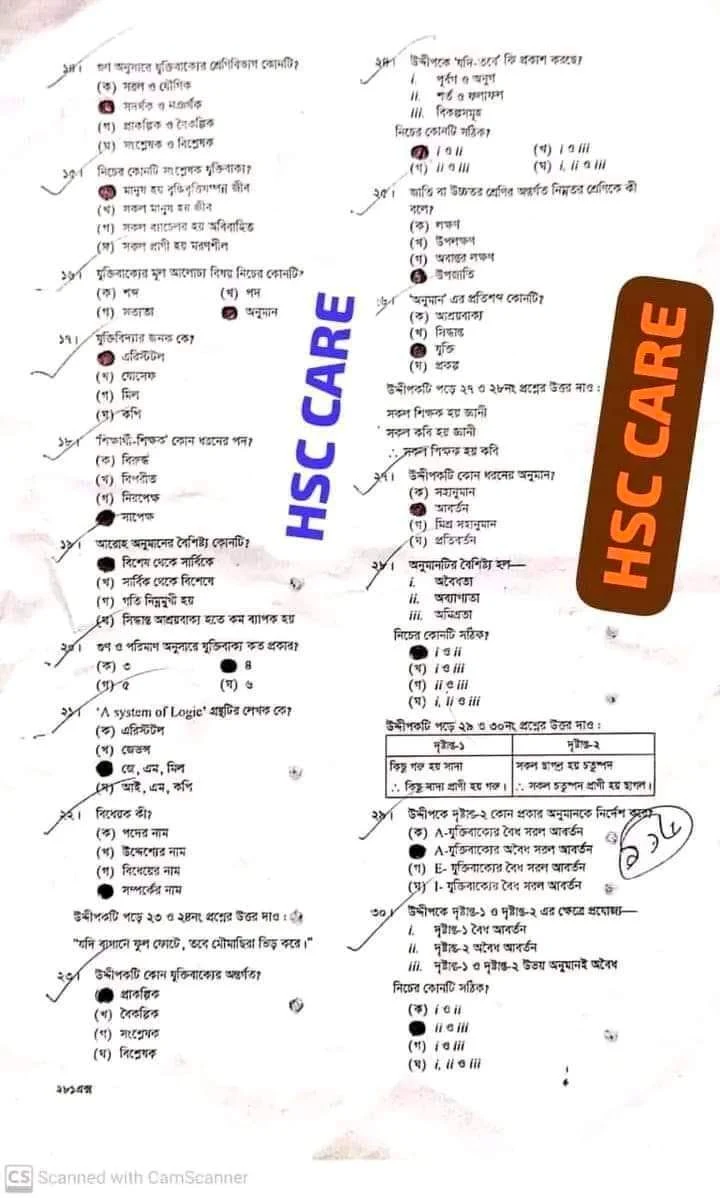 ১৪। গুণ অনুসারে যুক্তিবাক্যের শ্রেণিবিভাগ কোনটি?
(ক) সরল ও যৌগিক
সদর্থক ও নঞর্থক
(গ) প্রাকল্পিক ও বৈকল্পিক
(ঘ) সংশ্লেষক ও বিশ্লেষক
১৫। নিচের কোনটি সংশ্লেষক যুক্তিবাক্য?
মানুষ হয় বুদ্ধিবৃত্তিসম্পন্ন জীব
(খ) সকল মানুষ হয় জীব
(গ) সকল ব্যাচেলর হয় অবিবাহিত
(ঘ) সকল প্রাণী হয় মরণশীল
১৬। যুক্তিবাক্যের মূল আলোচ্য বিষয় নিচের কোনটি?
(ক) শব্দ (খ) পদ
(গ) সত্যতা অনুমান
১৭। যুক্তিবিদ্যার জনক কে?
এরিস্টটল
(খ) যোসেফ
(গ) মিল
(ঘ) কপি
১৮। 'শিক্ষার্থী-শিক্ষক' কোন ধরনের পদ?
(ক) বিরুদ্ধ
(খ) বিপরীত
(গ) নিরপেক্ষ
সাপেক্ষ
১৯। আরোহ অনুমানের বৈশিষ্ট্য কোনটি?
বিশেষ থেকে সার্বিকে
(খ) সার্বিক থেকে বিশেষে
(গ) গতি নিম্নমুখী হয়
(ঘ) সিদ্ধান্ত আশ্রয়বাক্য হতে কম ব্যাপক হয়
২০। গুণ ও পরিমাণ অনুসারে যুক্তিবাক্য কত প্রকার?
(ক) ৩ ৪
(গ) ৫ (ঘ) ৬
২১। 'A system of Logic' গ্রন্থটির লেখক কে?
(ক) এরিস্টটল
(খ) জেভন্স
জে, এম, মিল
(ঘ) আই, এম, কপি
২২। বিধেয়ক কী?
(ক) পদের নাম
(খ) উদ্দেশ্যের নাম
(গ) বিধেয়ের নাম
সম্পর্কের নাম
উদ্দীপকটি পড়ে ২৩ ও ২৪নং প্রশ্নের উত্তর দাও :
"যদি বাগানে ফুল ফোটে, তবে মৌমাছিরা ভিড় করে।"
২৩। উদ্দীপকটি কোন যুক্তিবাক্যের অন্তর্গত?
প্রাকল্পিক
(খ) বৈকল্পিক
(গ) সংশ্লেষক
(ঘ) বিশ্লেষক
২৮১এক্স
২৪। উদ্দীপকে 'যদি-তবে' কি প্রকাশ করছে?
i. পূর্বগ ও অনুগ
ii. শর্ত ও ফলাফল
iii. বিকল্পসমূহ
নিচের কোনটি সঠিক?
i ও ii (খ) i ও iii
(গ) ii ও iii (ঘ) i, ii ও iii
২৫। জাতি বা উচ্চতর শ্রেণির অন্তর্গত নিম্নতর শ্রেণিকে কী
বলে?
(ক) লক্ষণ
(খ) উপলক্ষণ
(গ) অবান্তর লক্ষণ
উপজাতি
২৬। 'অনুমান' এর প্রতিশব্দ কোনটি?
(ক) আশ্রয়বাক্য
(খ) সিদ্ধান্ত
যুক্তি
(ঘ) প্রকল্প
উদ্দীপকটি পড়ে ২৭ ও ২৮নং প্রশ্নের উত্তর দাও :
সকল শিক্ষক হয় জ্ঞানী
সকল কবি হয় জ্ঞানী
∴ সকল শিক্ষক হয় কবি
২৭। উদ্দীপকটি কোন ধরনের অনুমান?
(ক) সহানুমান
আবর্তন
(গ) মিশ্র সহানুমান
(ঘ) প্রতিবর্তন
২৮। অনুমানটির বৈশিষ্ট্য হল—
i. অবৈধতা
ii. অব্যাপ্যতা
iii. অমিশ্রতা
নিচের কোনটি সঠিক?
i ও ii
(খ) i ও iii
(গ) ii ও iii
(ঘ) i, ii ও iii
উদ্দীপকটি পড়ে ২৯ ও ৩০নং প্রশ্নের উত্তর দাও :
দৃষ্টান্ত-১ দৃষ্টান্ত-২
কিছু গরু হয় সাদা সকল ছাগল হয় চতুষ্পদ
∴ কিছু সাদা প্রাণী হয় গরু। ∴ সকল চতুষ্পদ প্রাণী হয় ছাগল।
২৯। উদ্দীপকে দৃষ্টান্ত-২ কোন প্রকার অনুমানকে নির্দেশ করে?
(ক) A-যুক্তিবাক্যের বৈধ সরল আবর্তন
A-যুক্তিবাক্যের অবৈধ সরল আবর্তন
(গ) E- যুক্তিবাক্যের বৈধ সরল আবর্তন
(ঘ) I- যুক্তিবাক্যের বৈধ সরল আবর্তন
৩০। উদ্দীপকে দৃষ্টান্ত-১ ও দৃষ্টান্ত-২ এর ক্ষেত্রে প্রযোজ্য—
i. দৃষ্টান্ত-১ বৈধ আবর্তন
ii. দৃষ্টান্ত-২ অবৈধ আবর্তন
iii. দৃষ্টান্ত-১ ও দৃষ্টান্ত-২ উভয় অনুমানই অবৈধ
নিচের কোনটি সঠিক?
(ক) i ও ii
ii ও iii
(গ) i ও iii
(ঘ) i, ii ও iii
HSC CARE
HSC CARE
CS Scanned with CamScanner